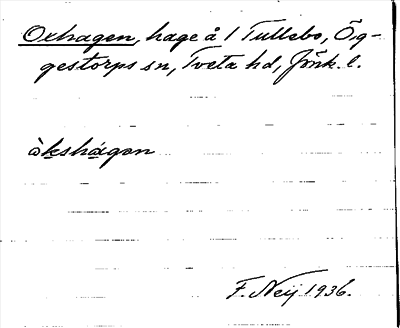 Oxhagen, hage å 1 Tullebo, Ög-
gestorps sn, Tveta hd, Jönk. l.
òkshágən
F. Neij 1936.